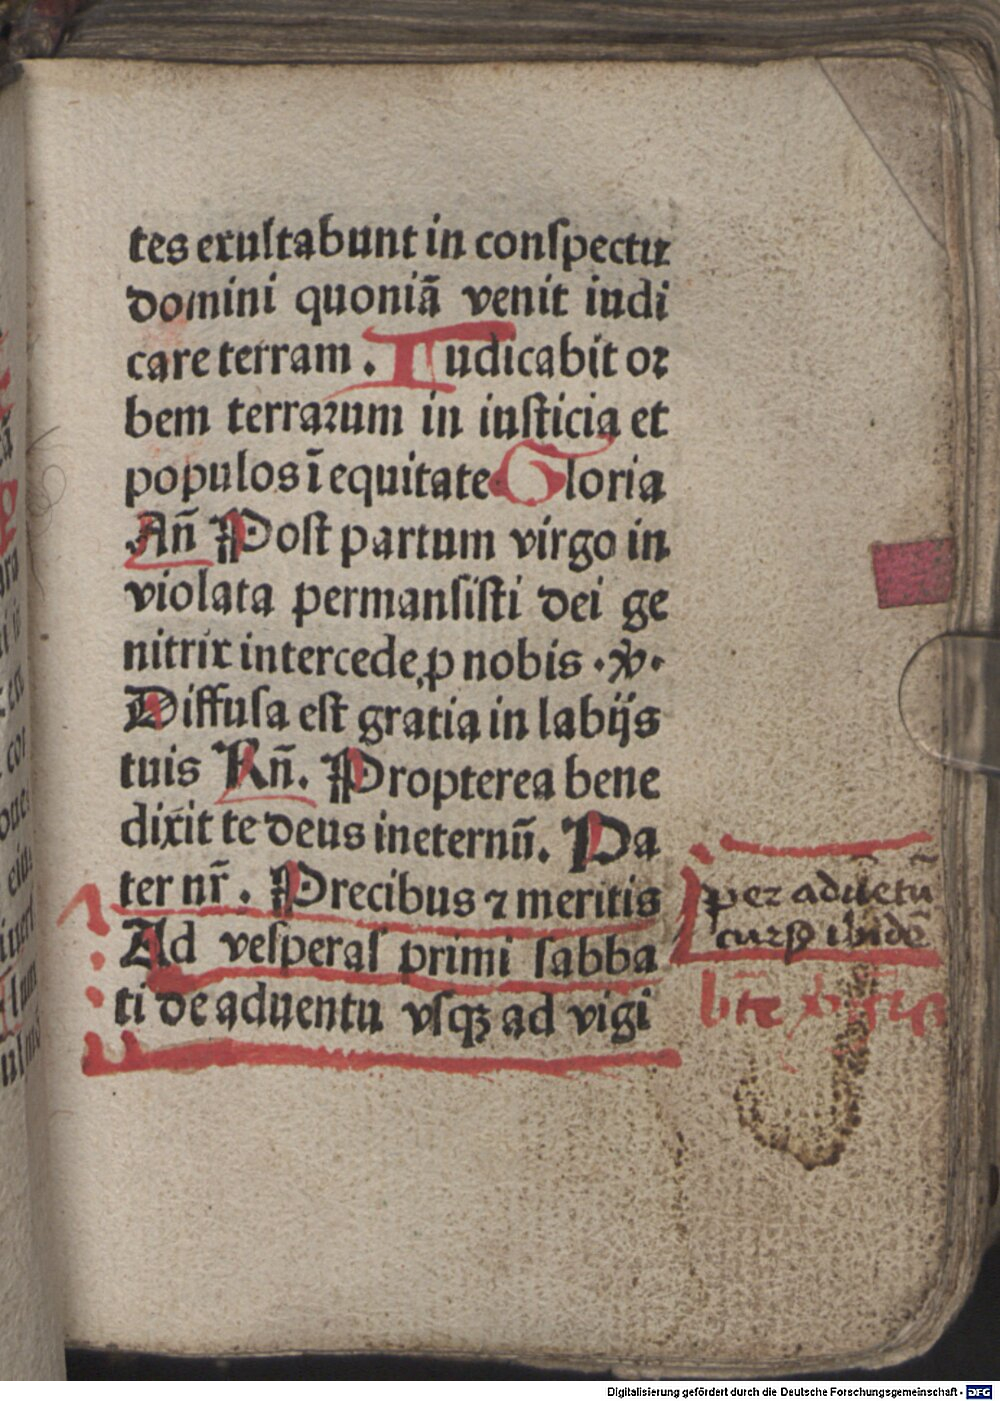 tes exultabunt in conſpectu
domini quoniā venit iudi
care terram . Iudicabit oꝛ
bem terraꝛum in iuſticia et
populos ī equitate Gloria
An̄ Poſt partum virgo in
violata permanſiſti dei ge
nitrix intercede ꝓ nobis · ℣ ·
Diffuſa eſt gratia in labijs
tuis Rn̄. Propterea bene
dixit te deus in eternū. Pa
ter nr̄ . Precibus ⁊ meritis
Ad veſperaſ primi ſabba
ti de aduentu vſqꝫ ad vigi
per aduētū
Digitalisierung gefördert durch die Deutsche Forschungsgemeinschaft - DFG